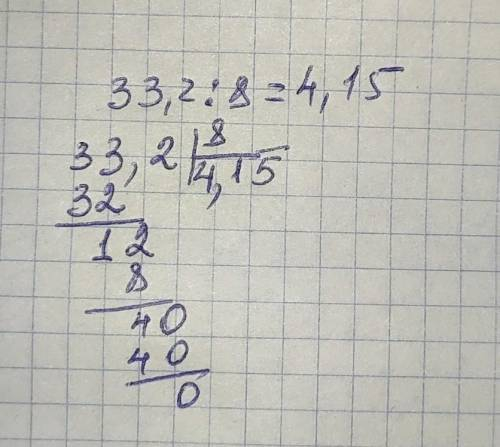 33,2:8=4,15
33,2|8
32 4,15
12
8
40
40
0